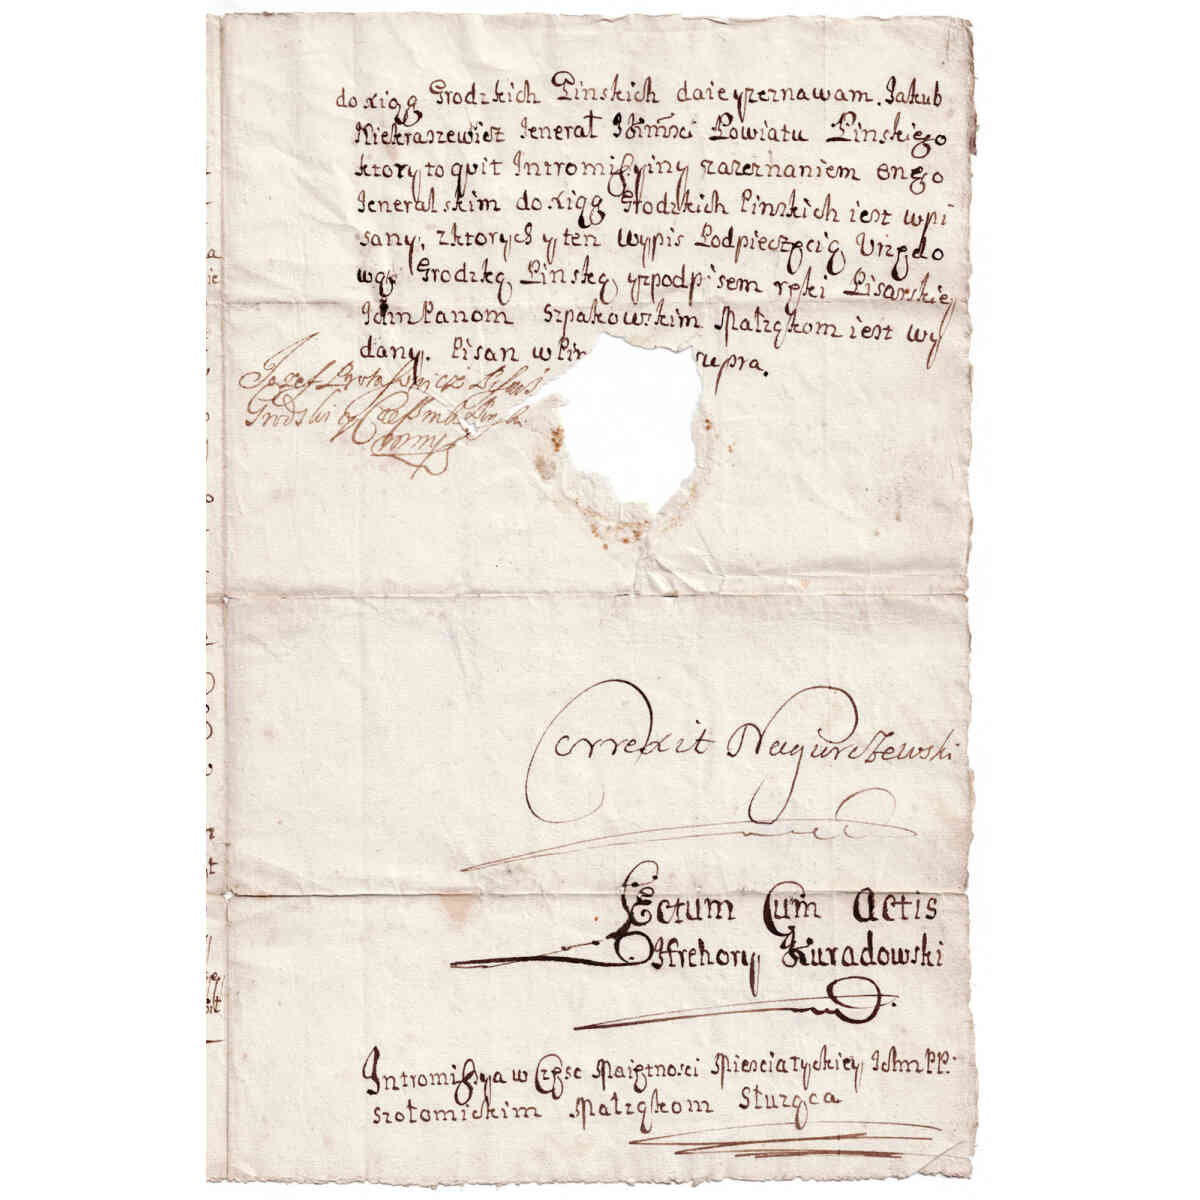 do xiąg Grodzkich Pinskich daie y zeznawam. Jakub
Niekraszewicz Jenerał JKmsci Powiatu Pinskiego
ktory to quit Intromissyiny za zeznaniem onego
Jeneralskim do xiąg Grodzkich Pinskich iest wpi
sany, z ktorych y ten wypis pod pieczęcią Urzędo
wą Grodzką Pinską y z podpisem ręki Pisarskiey
Ichm Panom Szpakowskim Małżąkom iest wy
dany. Pisan w supra.
Jozef Protasowicz Pisarz
Grodski
Correxit Nagurczewski
Lectum Cum Actis
Hrehory Kuradowski
Intromissya w Częsc Maiętnosci Miesciatyckiey Ichm PP.
Szołomickim Małżąkom Służąca